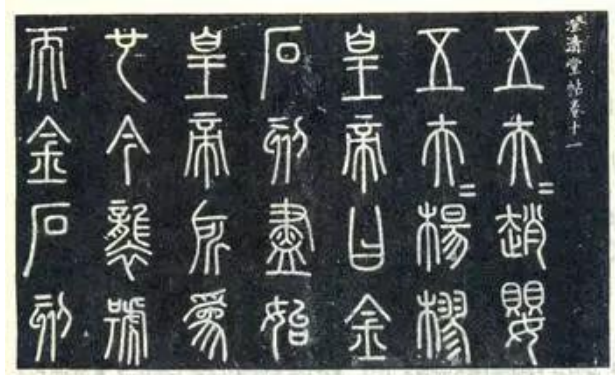 澄清堂帖卷十一
五夫＝趙嬰
五夫＝楊樛
皇帝曰金
石刻盡始
皇帝所為
也今襲號
而金石刻